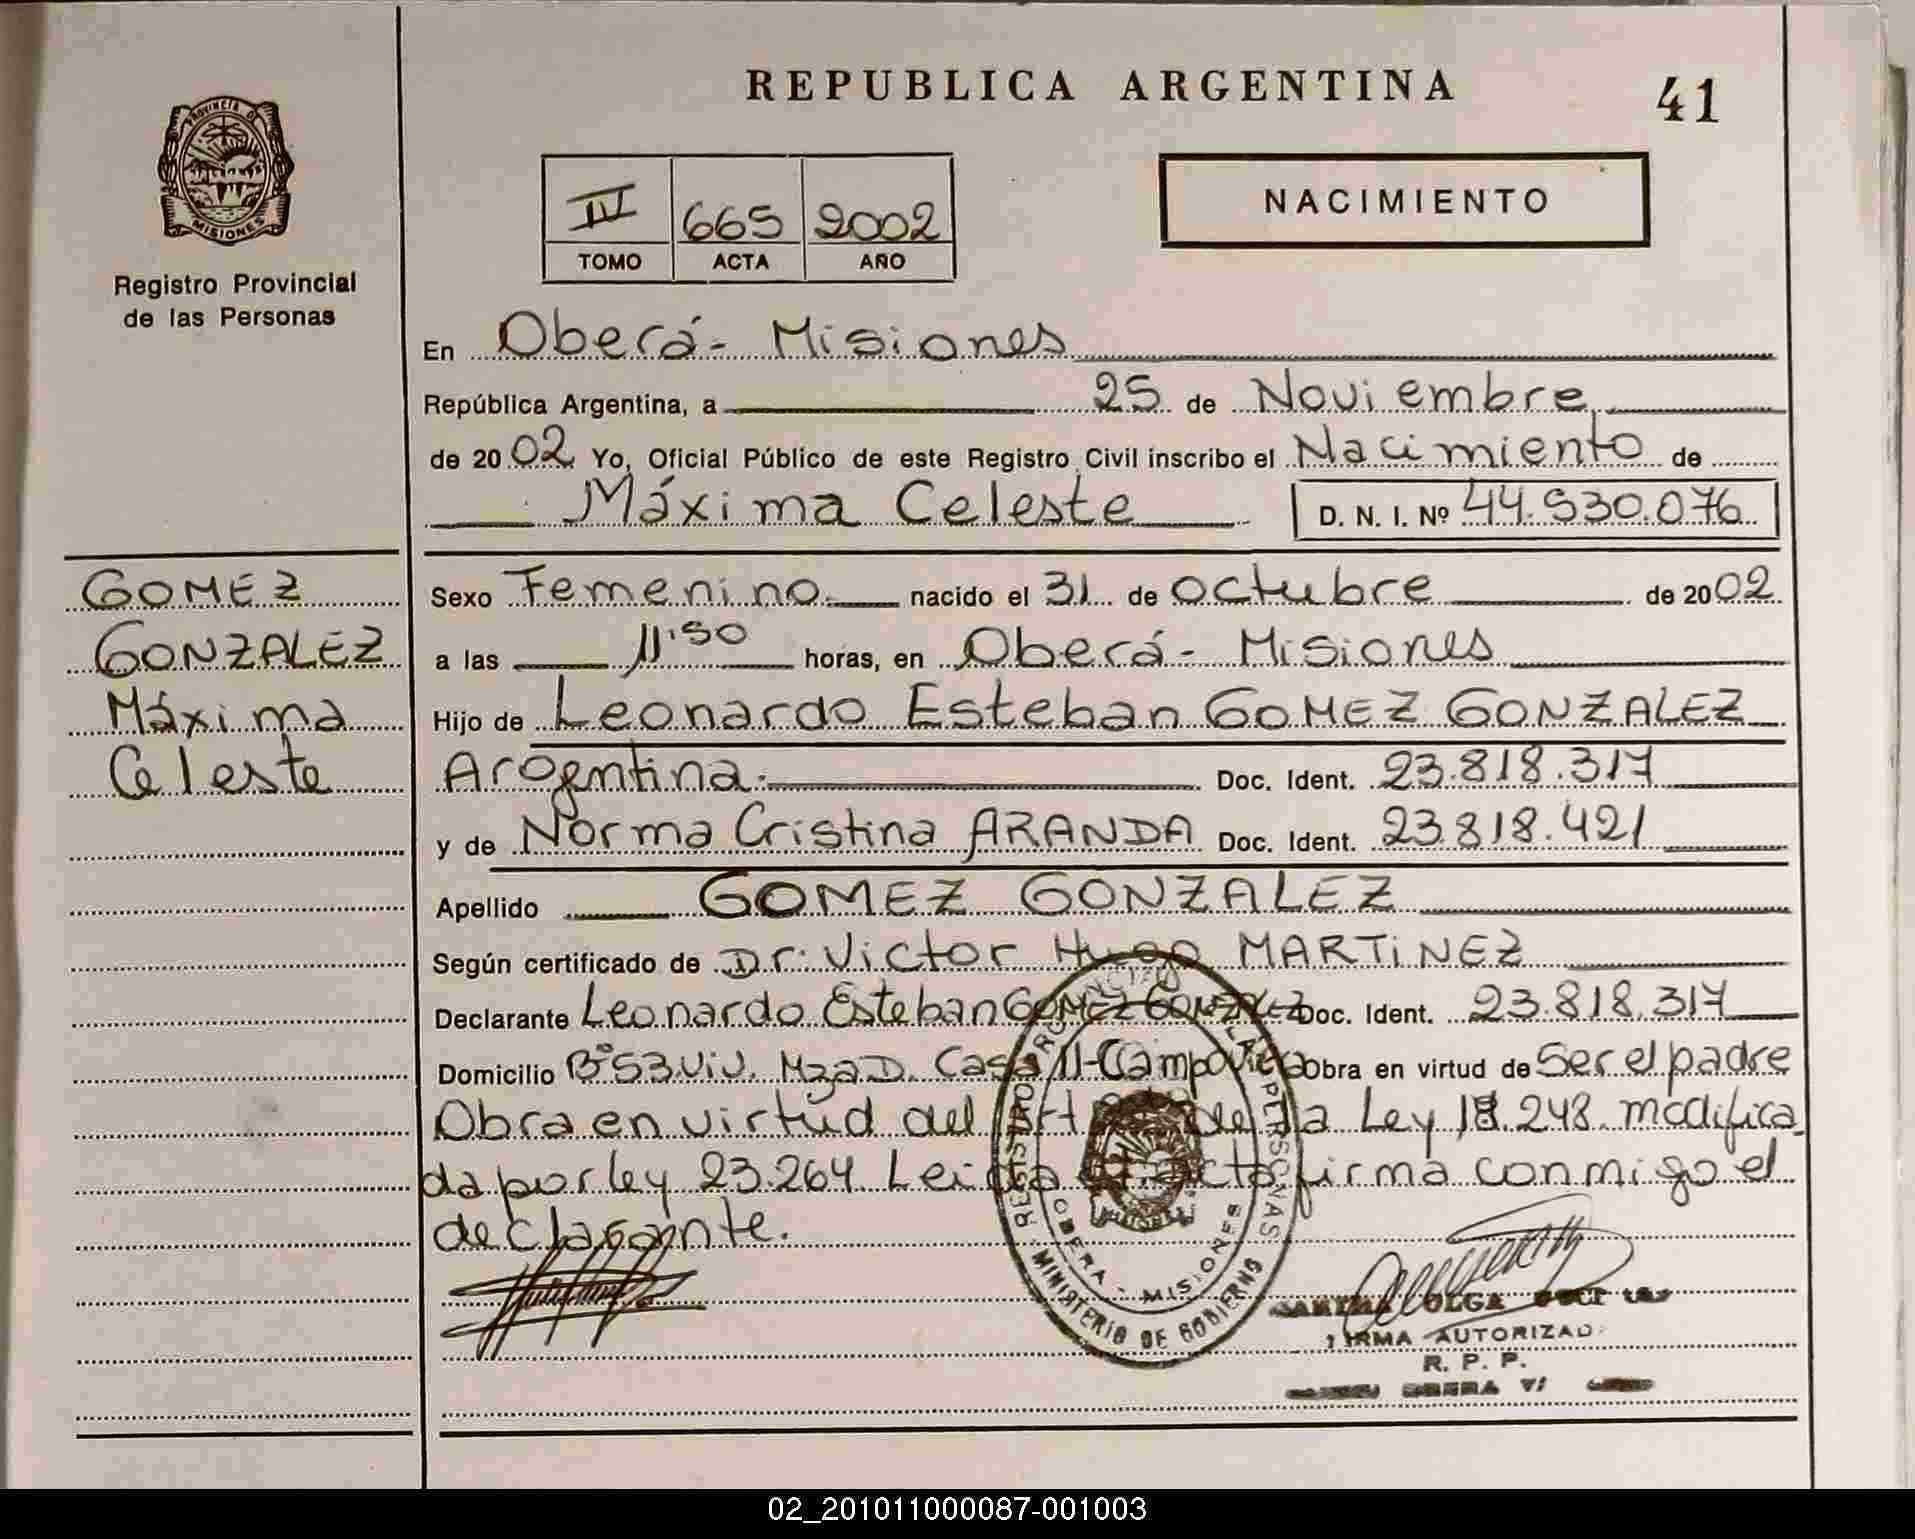 REPUBLICA ARGENTINA
41
PROVINCIA DE
MISIONES
Registro Provincial
de las Personas
665 2002
TOMO ACTA AÑO
NACIMIENTO
En Oberá- Misiones
República Argentina, a 25 de Noviembre
de 2002 Yo, Oficial Público de este Registro Civil inscribo el Nacimiento de
Máxima Celeste D. N. I. Nº 44.530.076
GOMEZ
GONZALEZ
Máxima
Celeste
Sexo Femenino. nacido el 31 de octubre de 2002
a las 11'50 horas, en Oberá- Misiones
Hijo de Leonardo Esteban GOMEZ GONZALEZ
Argentina. Doc. Ident. 23.818.317
y de Norma Cristina ARANDA Doc. Ident. 23.818.421
Apellido GOMEZ GONZALEZ
Según certificado de Dr. Victor Hugo MARTINEZ
Declarante Leonardo Esteban GOMEZ GONZALEZ Doc. Ident. 23.818.317
Domicilio Bº 53 Viv. Mza D. Casa 11-Campo Viera Obra en virtud de Ser el padre
Obra en virtud del de la Ley 18.248. modifica
da por ley 23.264. Leida el acta firma conmigo el
declarante.
REGISTRO PROVINCIAL DE LAS PERSONAS
OBERA - MISIONES
MINISTERIO DE GOBIERNO
OLGA
FIRMA AUTORIZADA
R. P. P.
02_201011000087-001003